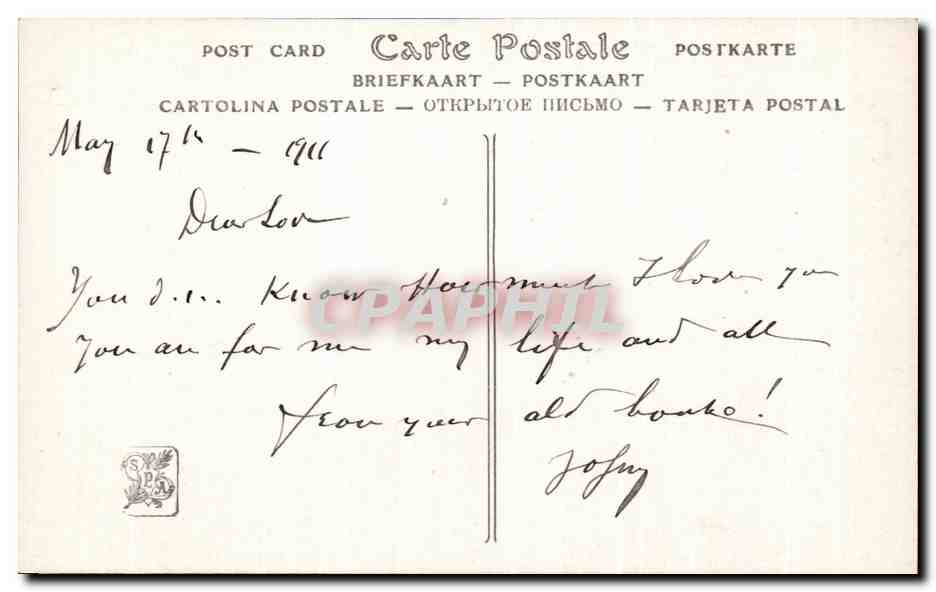 POST CARD Carte Postale POSTKARTE
BRIEFKAART — POSTKAART
CARTOLINA POSTALE — ОТКРЫТОЕ ПИСЬМО — TARJETA POSTAL
May 17th — 1911
Dear Love
You Know How much I love you
You are for me my life and all
from your old
SPA
CPAPHIL